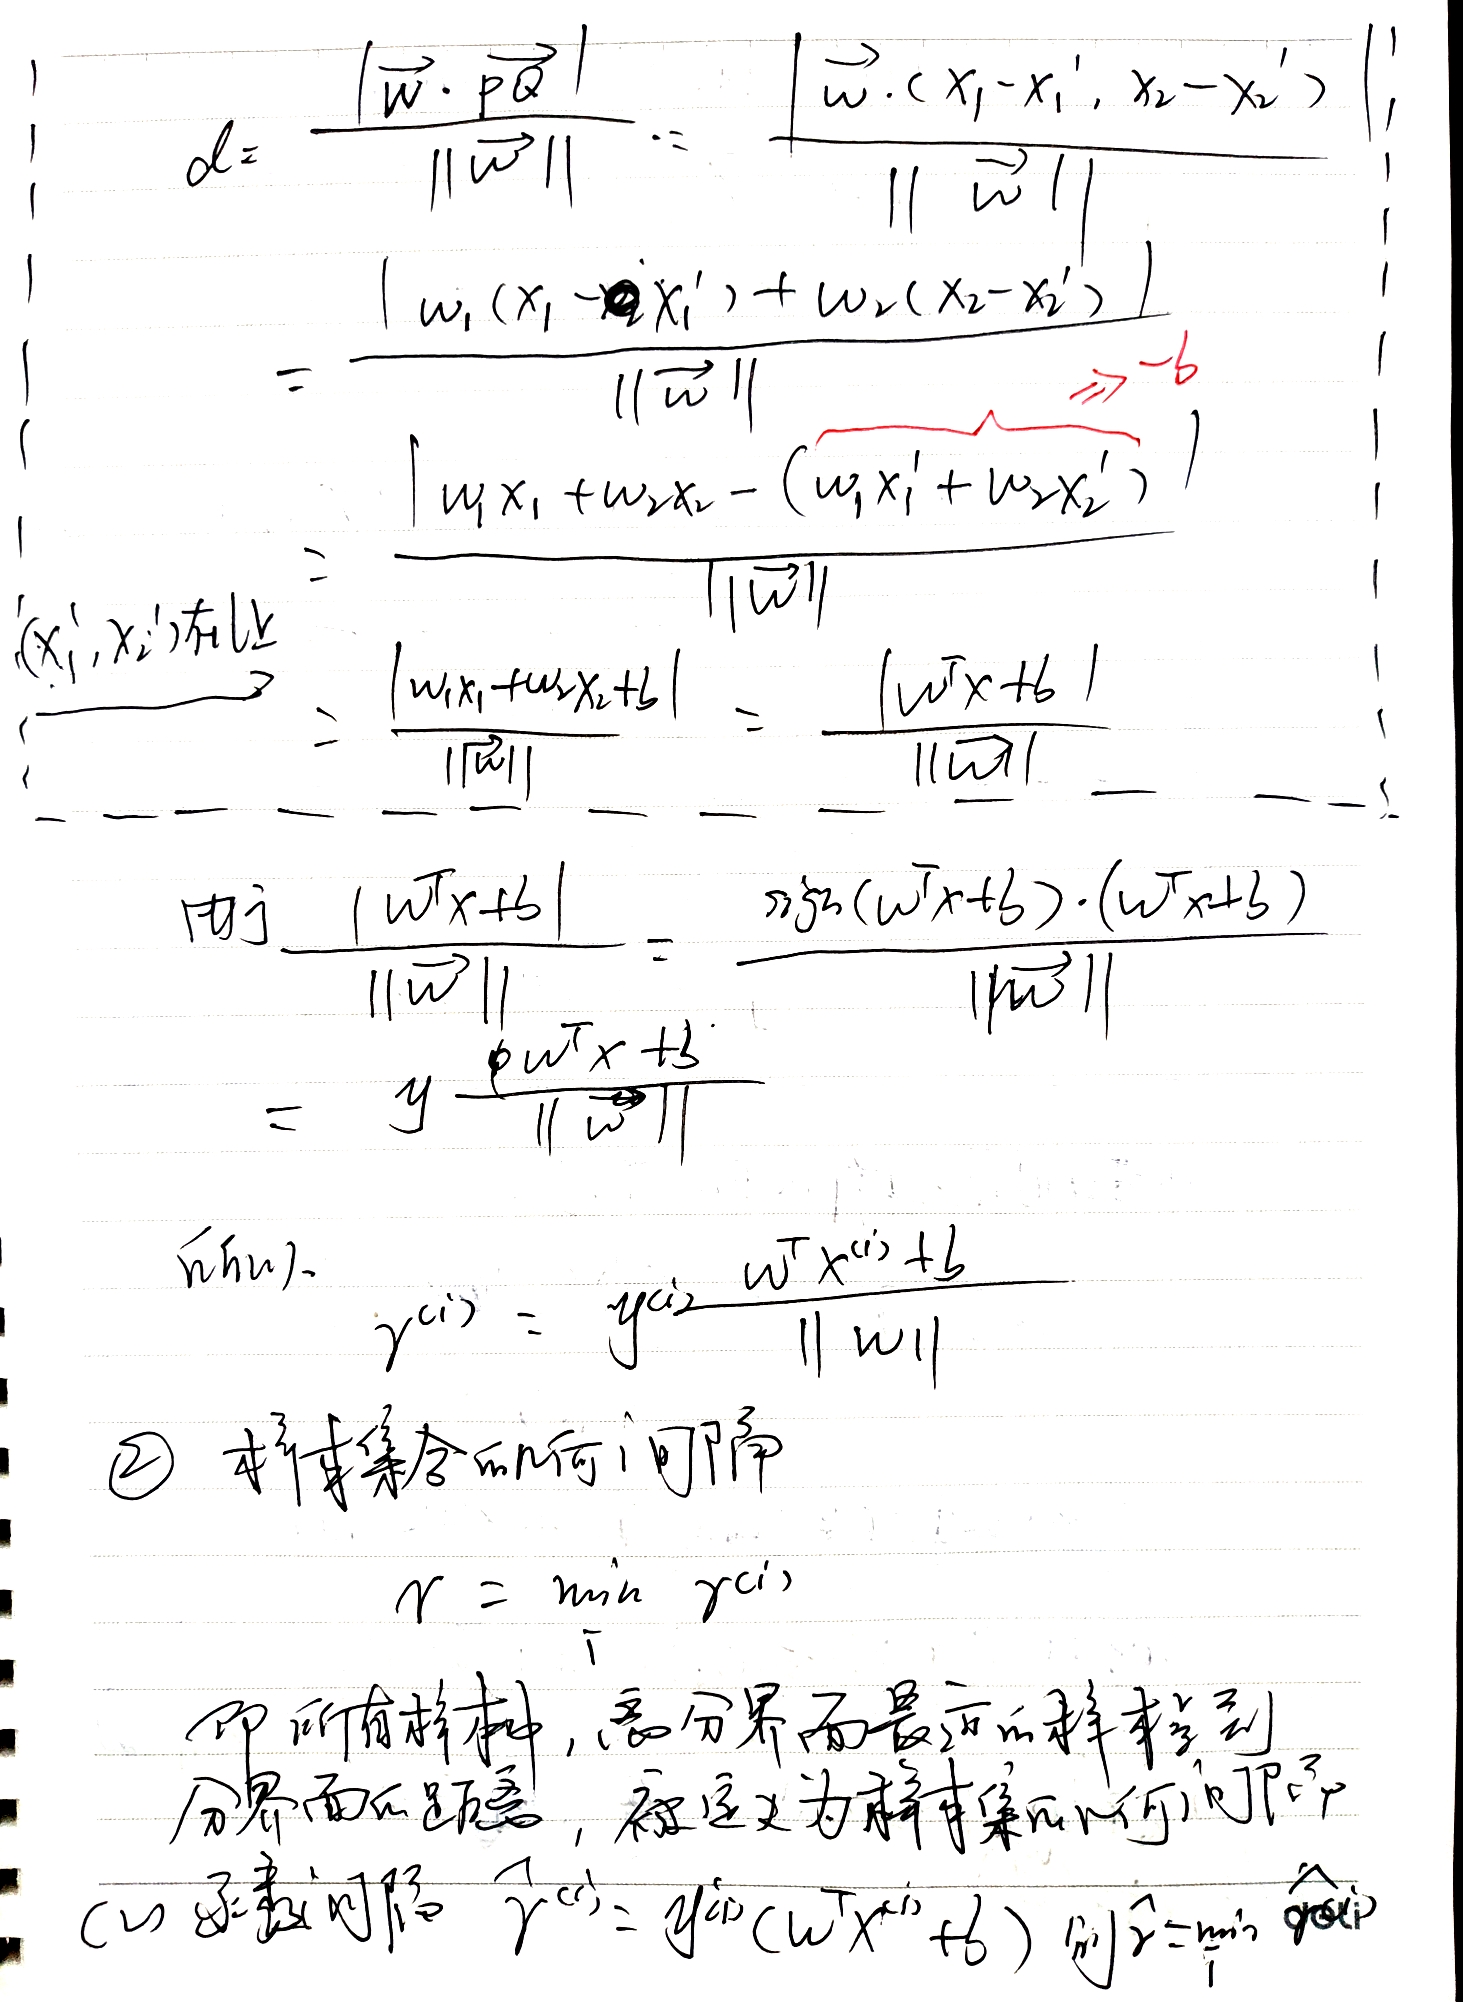 d = |w⃗·PQ⃗| / ||w⃗|| = |w⃗·(x₁-x₁', x₂-x₂')| / ||w⃗||
= |w₁(x₁-x₁')+w₂(x₂-x₂')| / ||w⃗||
⇒ -b
= |w₁x₁+w₂x₂-(w₁x₁'+w₂x₂')| / ||w⃗||
(x₁', x₂')在l上
= |w₁x₁+w₂x₂+b| / ||w⃗|| = |wᵀx+b| / ||w⃗||
由于 |wᵀx+b| / ||w⃗|| = sign(wᵀx+b)·(wᵀx+b) / ||w⃗||
= y (wᵀx+b) / ||w⃗||
所以
γ⁽ⁱ⁾ = y⁽ⁱ⁾ (wᵀx⁽ⁱ⁾+b) / ||w||
② 样本集合的几何间隔
γ = min_i γ⁽ⁱ⁾
即所有样本中,离分界面最近的样本点到
分界面的距离,被定义为样本集的几何间隔
(2) 函数间隔 γ̂⁽ⁱ⁾ = y⁽ⁱ⁾(wᵀx⁽ⁱ⁾+b) 则 γ̂ = min_i γ̂⁽ⁱ⁾